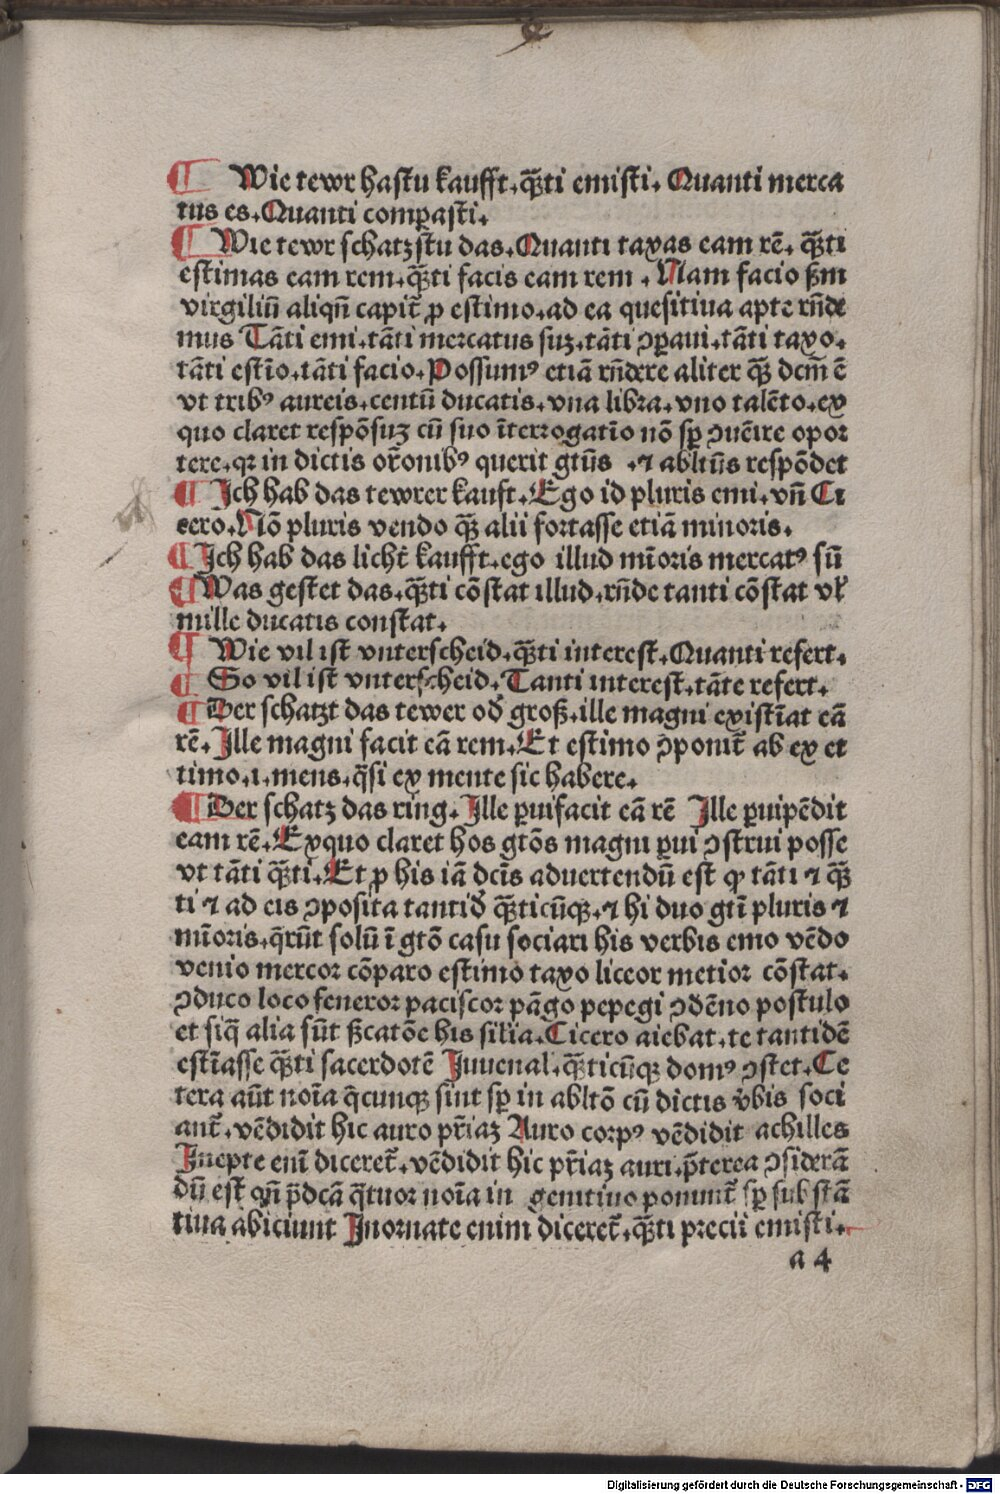 ¶ Wie tewr hastu kaufft.q̄ti emisti. Quanti merca
tus es.Quanti comꝑasti.
¶ Wie tewr schatzstu das.Quanti taxas eam rē. q̄ti
estimas eam rem.q̄ti facis eam rem . Nam facio ẜm
virgiliū aliqn̄ capit̄ ꝓ estimo.ad ea quesitiua apte rn̄de
mus Tāti emi.tāti mercatus suꝫ.tāti ↄꝑaui.tāti taxo.
tāti estīo.tāti facio.Possumꝰ etiā rn̄dere aliter qꝫ̄ dcm̄ ē
vt tribꝰ aureis.centū ducatis.vna libra.vno talēto.ex
quo claret respōsuꝫ cū suo īterrogatīo nō sꝑ ↄuēire opor
tere.qꝛ in dictis or̄onibꝰ querit gtūs .⁊ abltīūs respōdet
¶ Ich hab das tewrer kauft.Ego id pluris emi.vn̄ Ci
cero.Nō pluris vendo qꝫ̄ alii fortasse etiā minoris.
¶ Ich hab das licht̄ kaufft.ego illud mīoris mercatꝰ sū
¶ Was gestet das.q̄ti cōstat illud.rn̄de tanti cōstat vł
mille ducatis constat.
¶ Wie vil ist vnterscheid.q̄ti interest.Quanti refert.
¶ So vil ist vnterscheid.Tanti interest.tāte refert.
¶ Der schatzt das tewer od̄ groß.ille magni existīat eā
rē.Ille magni facit eā rem.Et estimo ↄponit̄ ab ex et
timo.i.mens.q̄si ex mente sic habere.
¶ Der schatz das ring.Ille ꝑuifacit eā rē Ille ꝑuipēdit
eam rē.Exquo claret hos gtōs magni ꝑui ↄstrui posse
vt tāti q̄ti.Et ꝓ his iā dcīs aduertendū est ꝙ tāti ⁊ qꝫ̄
ti ⁊ ad eis ↄposita tantid̄ q̄ticūqꝫ.⁊ hi duo gtī pluris ⁊
mīoris.q̄rūt solū ī gtō casu sociari his verbis emo vēdo
venio mercor cōparo estimo taxo liceor metior cōstat.
ↄduco loco feneror paciscor pāgo pepegi ↄdēno postulo
et siq̄ alia sūt ẜcatōe his silia.Cicero aiebat.te tantidē
estīasse q̄ti sacerdotē Iuuenal.q̄ticūqꝫ domꝰ ↄstet.Ce
tera aūt noīa q̄cunqꝫ sint sꝑ in abltō cū dictis v̄bis soci
ant̄.vēdidit hic auro pr̄iaꝫ Auro corpꝰ vēdidit achilles
Inepte enī diceret̄.vēdidit hic pr̄iaꝫ auri.p̄terea ↄsiderā
dū est qn̄ p̄dcā q̄tuor noīa in genitiuo ponunt̄ sꝑ substā
tiua abiciunt Inornate enim diceret̄.q̄ti precii emisti.
a 4
Digitalisierung gefördert durch die Deutsche Forschungsgemeinschaft - DFG